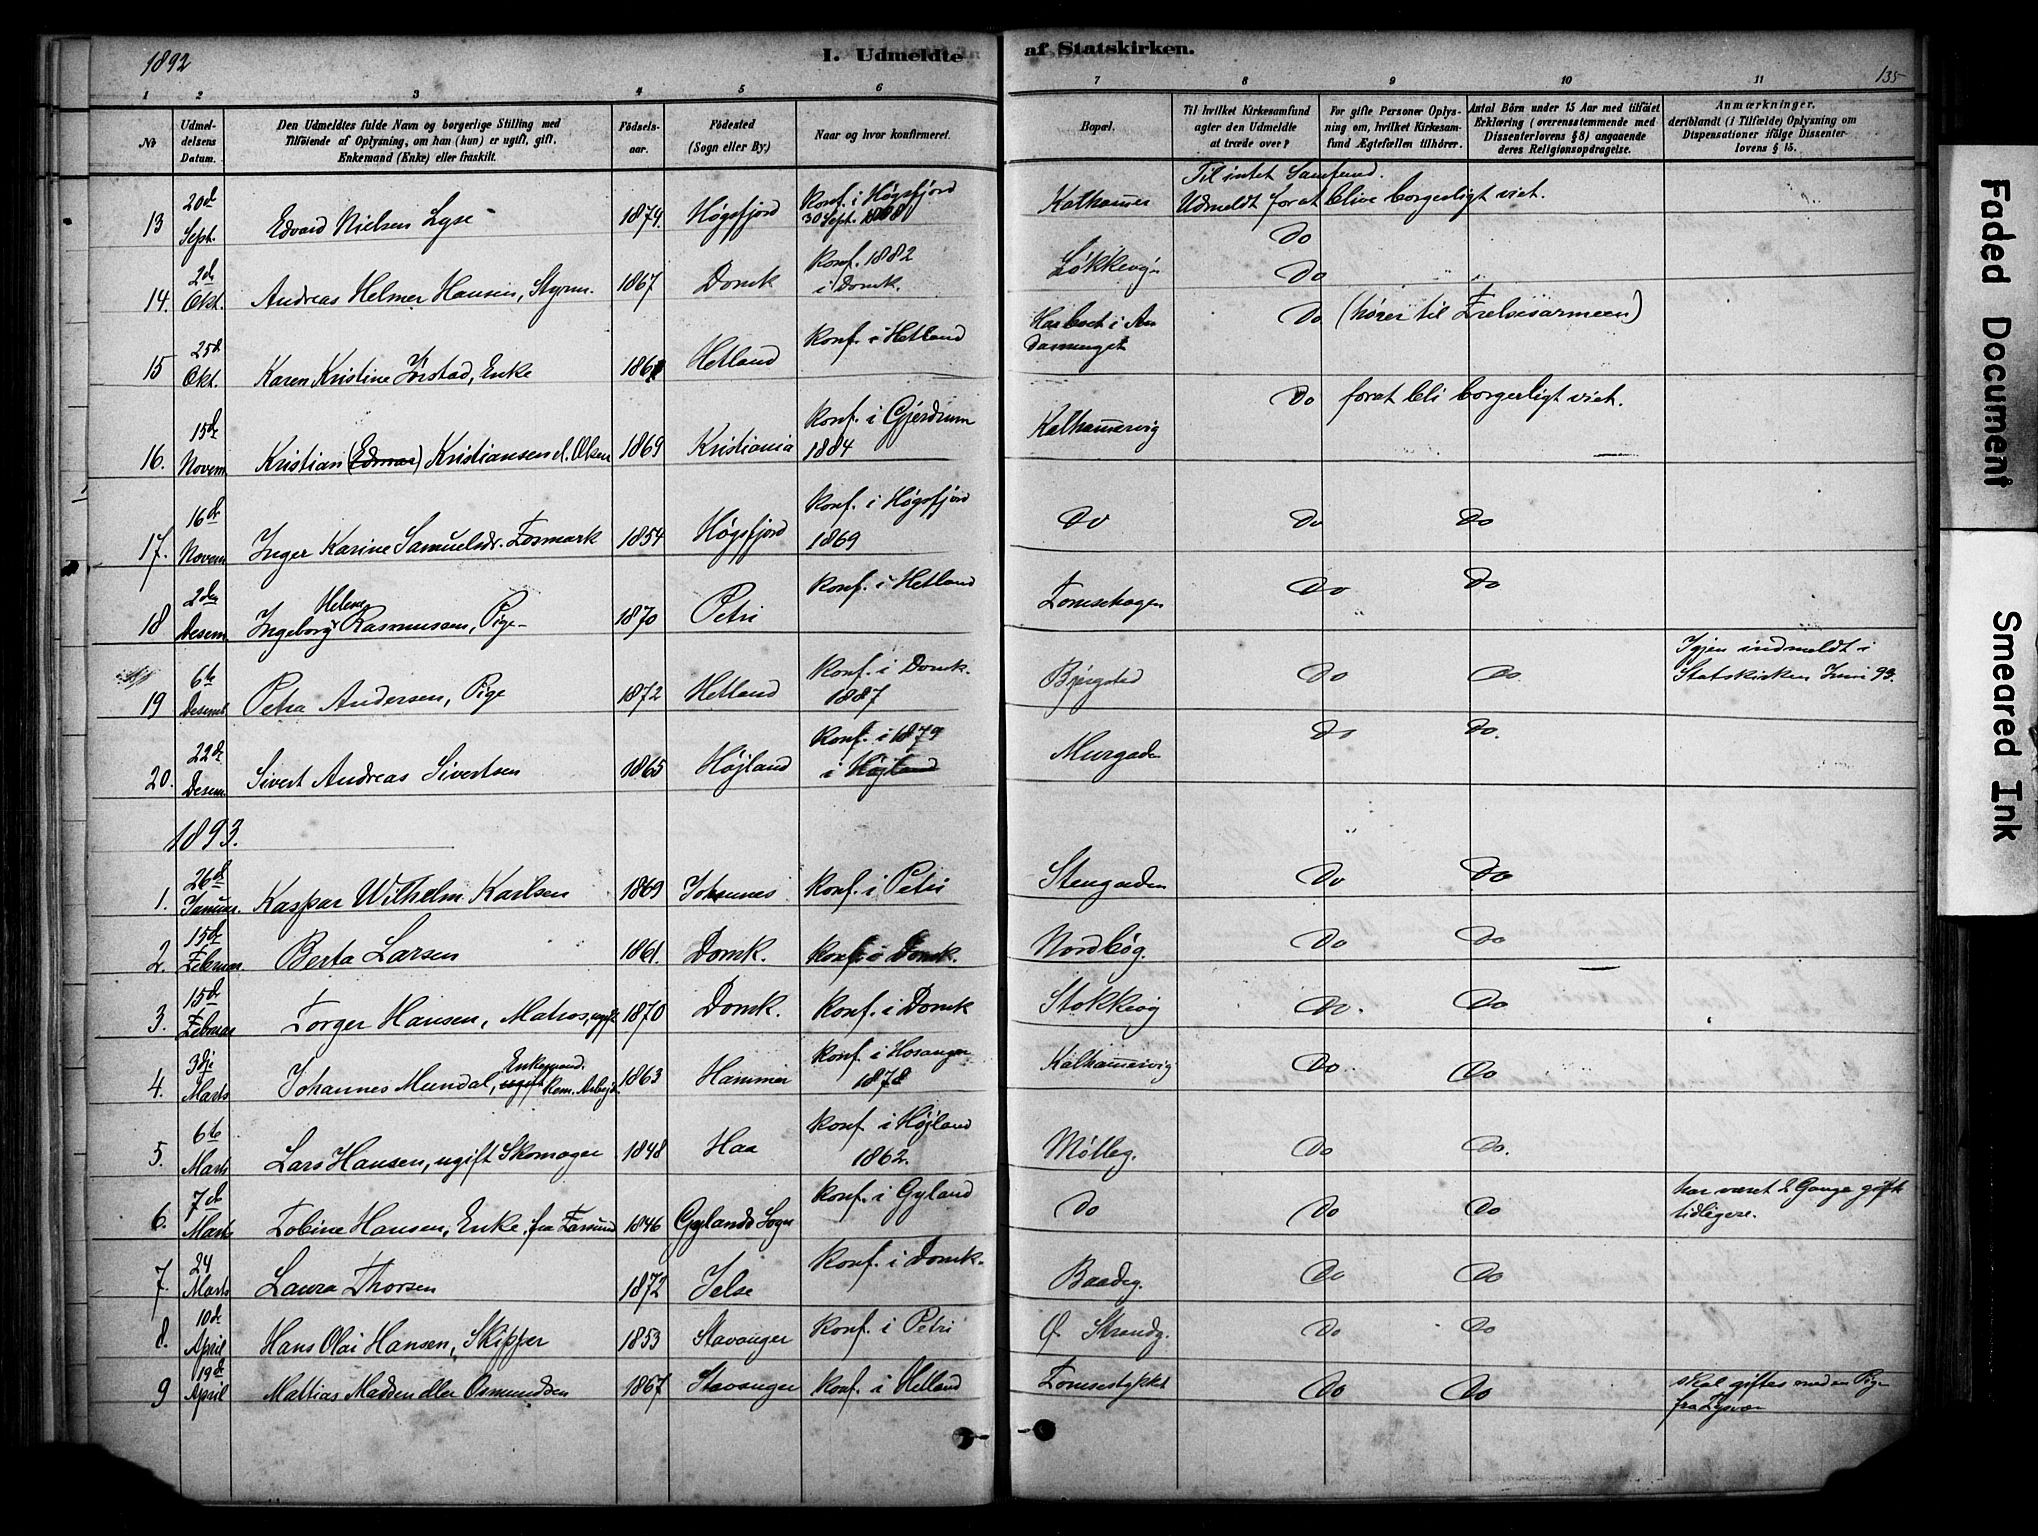 1892
I. Udmeldte af Statskirken.
135
1 2 3 4 5 6 7 8 9 10 11
No
Udmeldelsens Datum.
Den Udmeldtes fulde Navn og borgerlige Stilling med
Tilføiende af Oplysning, om han (hun) er ugift, gift,
Enkemand (Enke) eller fraskilt.
Fødselsaar.
Fødested
(Sogn eller By)
Naar og hvor konfirmeret.
Bopæl.
Til hvilket Kirkesamfund
agter den Udmeldte
at træde over?
For gifte Personer Oplysning om, hvilket Kirkesamfund Ægtefællen tilhører.
Antal Børn under 15 Aar med tilføiet
Erklæring (overensstemmende med
Dissenterlovens § 8) angaaende
deres Religionsopdragelse.
Anmærkninger,
deriblandt (i Tilfælde) Oplysning om
Dispensationer ifølge Dissenterlovens § 15.
13 20de Sept. Edvard Nielsen Lyse 1874. Høgsfjord Konf. i Høgsfjord 30 Sept. 1888 Kalhammer Til intet Samfund. Udmeldt forat blive borgerligt viet.
Do
14. 2de Okt. Andreas Helmer Hansen, Styrm. 1867 Domk Konf. 1882 i Domk. Løkkevgn Do
15 25de Okt. Karen Kristine Jørstad, Enke Hetland Konf. i Hetland Har boet i Do (hører til Frelsesarmeen)
16. 15de Novem. Kristian (Edmar) Kristiansen 1869 Kristiania Konf. i Gjerdrum 1884 Kalhammervig Do forat bli borgerligt viet.
17. 16de Novem Inger Karine Samuelsdr. Fosmark 1854 Høgsfjord Konf. i Høgsfjord 1869 Do Do Do
18 2den Desem. Ingeborg Helene Rasmussen, Pige 1870 Petri Konf. i Hetland Tomsehagen Do Do
19 6te Desemb Petra Andersen, Pige 1872 Hetland Konf. i Domk. 1887 Bjergsted Do Do. Igjen indmeldt i Statskirken Juni 93.
20. 22de Desem. Sivert Andreas Sivertsen 1865 Højland Konf. i 1879 i Højland Murgaden Do Do.
1893.
1. 26de Januar. Kaspar Wilhelm Karlsen 1869 Johannes Konf. i Petri Stengaden Do Do
2. 15de Februar. Berta Larsen 1861. Domk. Konf. i Domk. Nordbøg. Do Do
3. 15de Februar Torger Hansen, Matros, ugift 1870 Domk. Konf. i Domk Stokkevg Do. Do
4. 3dje Marts Johannes Mundal, ugift Enkemand. Kom. Arbejd. 1863 Hammer Konf. i Hosanger 1878 Kalhammervig Do. Do
5. 6te Marts Lars Hansen, ugift Skomager 1848 Haa Konf. i Højland 1862. Mølleg. Do Do.
6. 7de Marts Tobine Hansen, Enke, fra Farsund 1846 Gylands Sogn Konf. i Gyland Do Do Do har været 2 Gange gift tidligere.
7. 24 Marts Laura Thorsen 1872 Jelse Konf. i Domk. Baadeg. Do Do
8. 10de April Hans Olai Hansen, Skipper 1853 Stavanger Konf. i Petri Ø. Strandg. Do Do
9 19de April Mattias Madsen eller Osmundsen 1867 Stavanger Konf. i Hetland Tomsestykket Do Do skal giftes med en Pige fra Tysvær
Faded Document
Smeared Ink